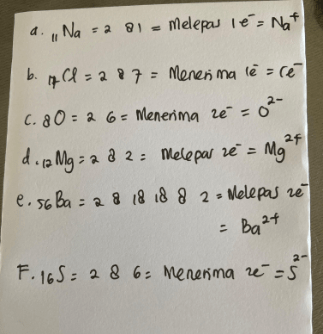 a. ₁₁Na = 2 8 1 = Melepas 1e⁻ = Na⁺
b. ₁₇Cl = 2 8 7 = Menerima 1e⁻ = Cl⁻
c. 8O = 2 6 = Menerima 2e⁻ = O²⁻
d. ₁₂Mg = 2 8 2 = Melepas 2e⁻ = Mg²⁺
e. 56Ba = 2 8 18 18 8 2 = Melepas 2e⁻
= Ba²⁺
F. 16S = 2 8 6 = Menerima 2e⁻ = S²⁻